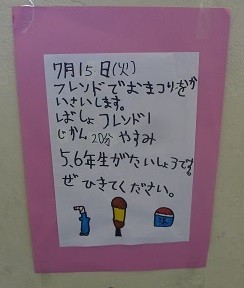 7月15日(火)
フレンドでおまつりをか
いさいします。
ばしょフレンド1
じかん20分やすみ
5、6年生がたいしょうです。
ぜひきてください。